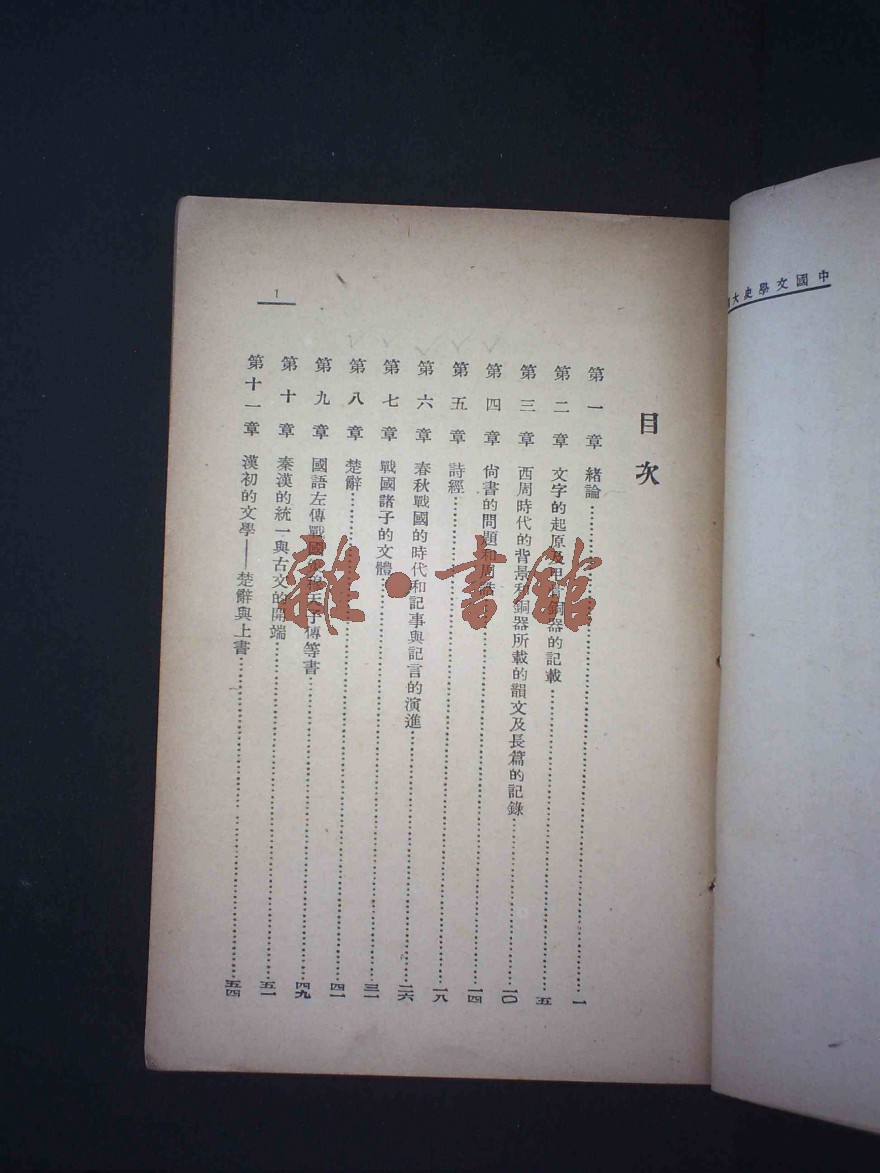 中國文學史大
目次
第一章 緒論……一
第二章 文字的起原及甲骨銅器的記載……五
第三章 西周時代的背景和銅器所載的韻文及長篇的記錄……一〇
第四章 尙書的問題和周誥……一四
第五章 詩經……一八
第六章 春秋戰國的時代和記事與記言的演進……二六
第七章 戰國諸子的文體……三一
第八章 楚辭……四一
第九章 國語左傳戰國穆天子傳等書……四九
第十章 秦漢的統一與古文的開端……五一
第十一章 漢初的文學——楚辭與上書……五四
1
雜·書館